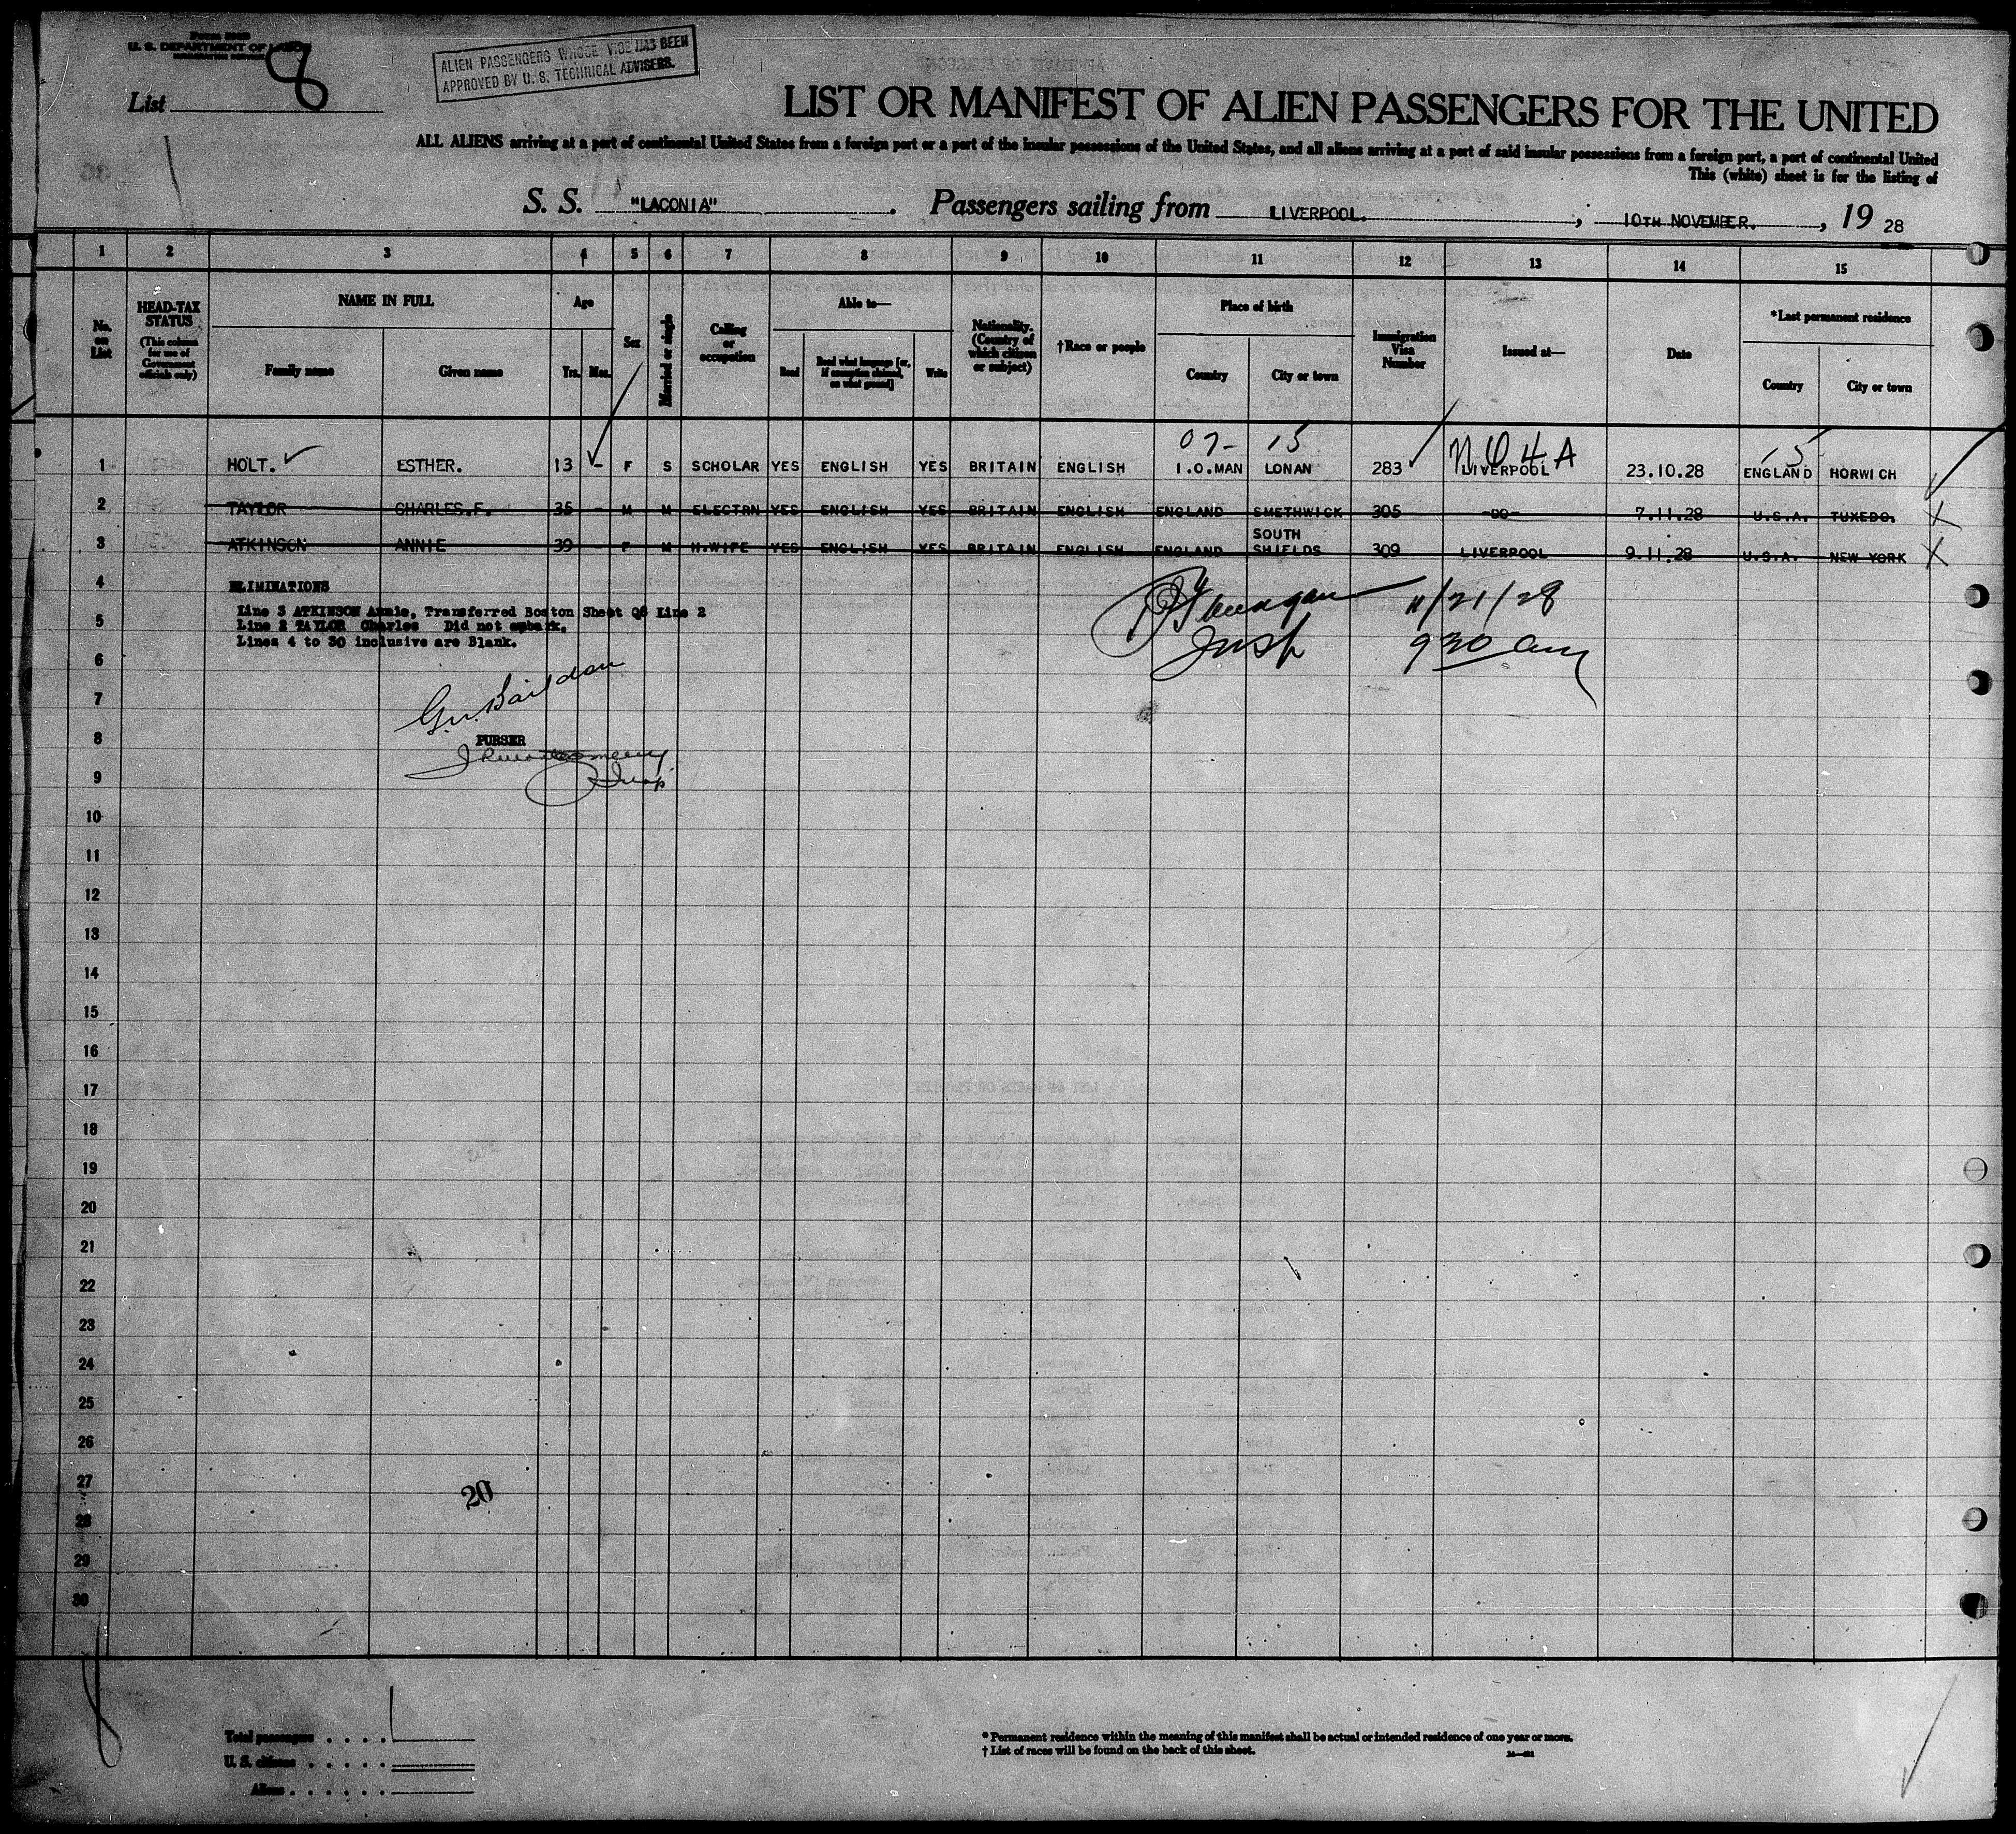 U. S. DEPARTMENT OF LABOR
List 8
ALIEN PASSENGERS WHOSE VISE HAS BEEN
APPROVED BY U. S. TECHNICAL ADVISERS.
LIST OR MANIFEST OF ALIEN PASSENGERS FOR THE UNITED
ALL ALIENS arriving at a port of continental United States from a foreign port or a port of the insular possessions of the United States, and all aliens arriving at a port of said insular possessions from a foreign port, a port of continental United
This (white) sheet is for the listing of
S. S. "LACONIA". Passengers sailing from LIVERPOOL. , 10TH NOVEMBER. , 19 28
1 2 3 4 5 6 7 8 9 10 11 12 13 14 15
No. on List
HEAD-TAX STATUS (This column for use of Government officials only)
NAME IN FULL Family name Given name
Age Yrs. Mos.
Sex
Married or single
Calling or occupation
Able to— Read Read what language [or, if exemption claimed, on what ground] Write
Nationality. (Country of which citizen or subject)
†Race or people
Place of birth Country City or town
Immigration Visa Number
Issued at—
Date
*Last permanent residence Country City or town
07- 15 NQ4A 15
1 HOLT. ESTHER. 13 - F S SCHOLAR YES ENGLISH YES BRITAIN ENGLISH I.O.MAN LONAN 283 LIVERPOOL 23.10.28 ENGLAND HORWICH
2 TAYLOR CHARLES.F. 35 - M M ELECTRN YES ENGLISH YES BRITAIN ENGLISH ENGLAND SMETHWICK 305 -DO- 7.11.28 U.S.A. TUXEDO. X
3 ATKINSON ANNIE 39 - F M H.WIFE YES ENGLISH YES BRITAIN ENGLISH ENGLAND SOUTH SHIELDS 309 LIVERPOOL 9.11.28 U.S.A. NEW YORK X
4 ELIMINATIONS
Line 3 ATKINSON Annie, Transferred Boston Sheet Q8 Line 2
5 Line 2 TAYLOR Charles Did not embark.
Lines 4 to 30 inclusive are Blank.
11/21/28
Insp 9 30 am
6
7
8 PURSER
Insp
9
10
11
12
13
14
15
16
17
18
19
20
21
22
23
24
25
26
27
20
28
29
30
Total passengers . . . . 1
U. S. citizens . . . . .
Aliens . . . . . .
* Permanent residence within the meaning of this manifest shall be actual or intended residence of one year or more.
† List of races will be found on the back of this sheet.